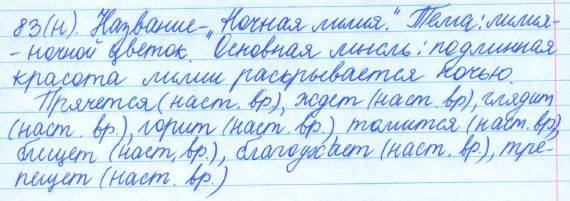 83(н). Название - „Ночная лилия." Тема: лилия -
- ночной цветок. Основная мысль: подлинная
красота лилии раскрывается ночью.
Прячется (наст. вр), ждет (наст. вр), глядит
(наст. вр.), горит (наст. вр.), томится (наст. вр),
блещет (наст, вр.), благоухает (наст. вр.), тре-
пещет (наст. вр.)